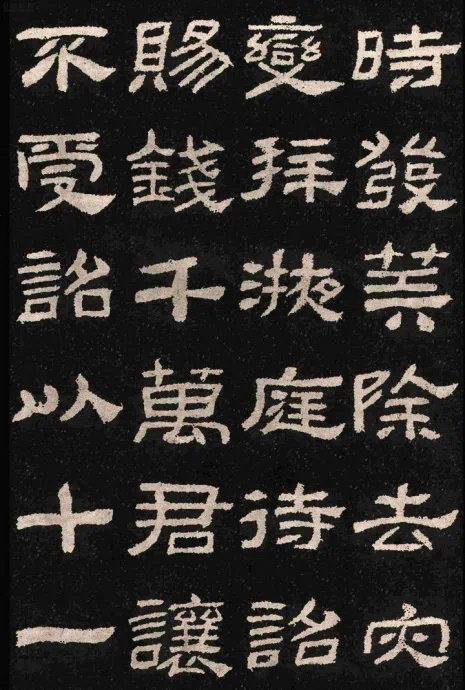 時發筭除去灾
變拜液庭待詔
賜錢千萬君讓
不受詔以十一